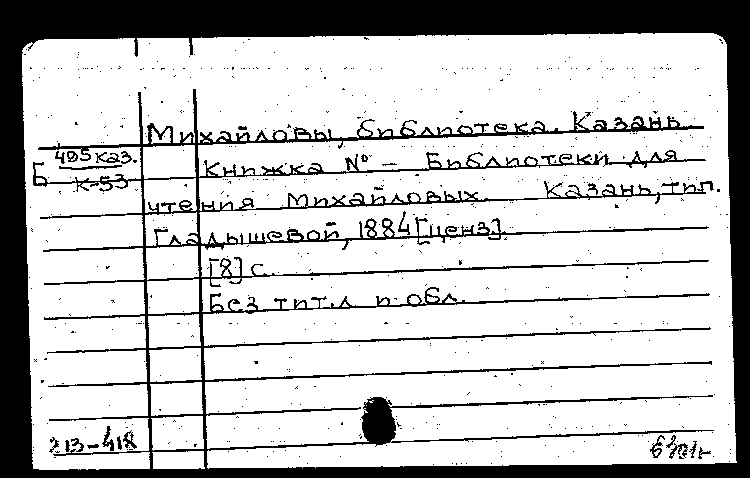 Михайловы, библиотека. Казань
Б 495 каз.
К-53
Книжка № — Библиотеки для
чтения Михайловых. Казань, тип.
Гладышевой, 1884 [ценз]
[8] с.
Без тит.л п. обл.
213-418